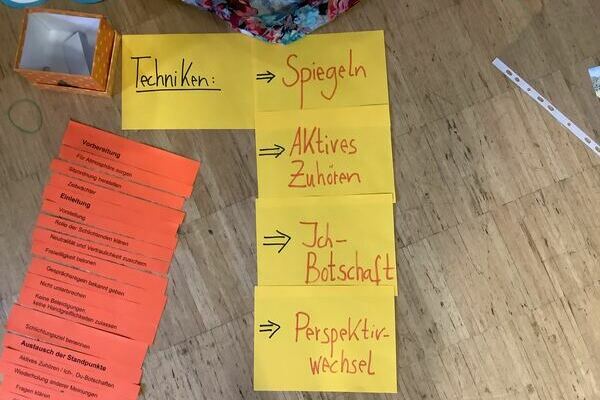 Techniken:
⇒ Spiegeln
⇒ Aktives
Zuhören
⇒ Ich-
Botschaft
⇒ Perspektiv-
wechsel
Vorbereitung
Für Atmosphäre sorgen
Sitzordnung herstellen
Zeitwächter
Einleitung
Vorstellung
Rolle der Schlichtenden klären
Neutralität und Vertraulichkeit zusichern
Freiwilligkeit betonen
Gesprächsregeln bekannt geben
Nicht unterbrechen
Keine Beleidigungen
keine Handgreiflichkeiten zulassen
Schlichtungsziel benennen
Austausch der Standpunkte
Aktives Zuhören / Ich-, Du-Botschaften
Wiederholung anderer Meinungen
Fragen klären